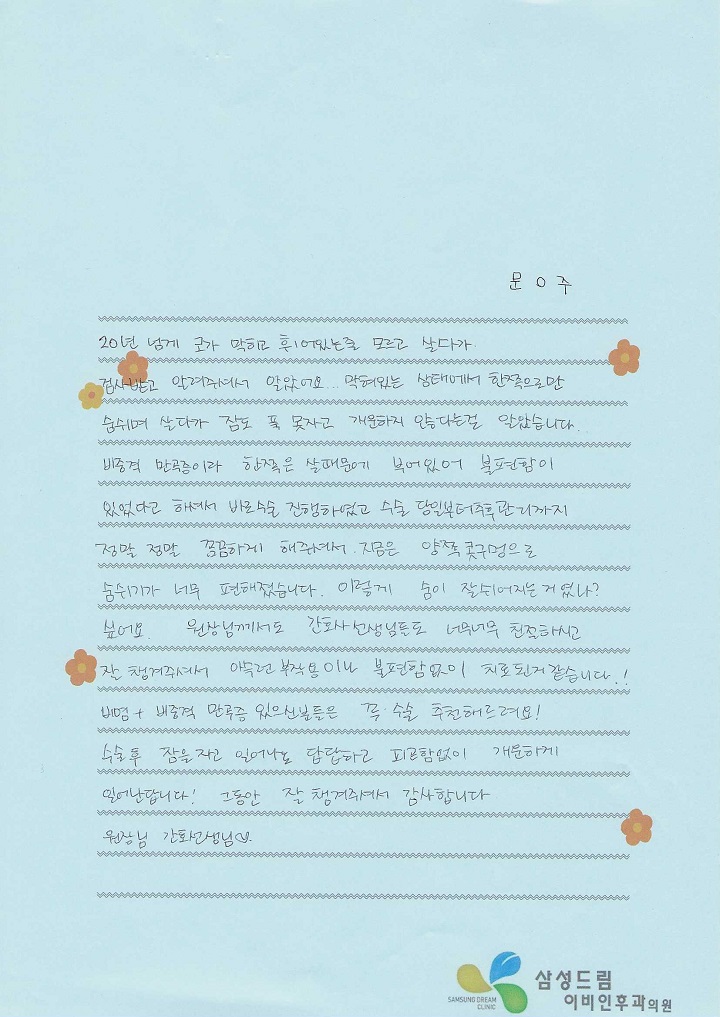 문 ㅇ 주
20년 넘게 코가 막히고 휘어있는줄 모르고 살다가
검사받고 알려주셔서 알았어요... 막혀있는 상태에서 한쪽으로만
숨쉬며 살다가 잠도 푹 못자고 개운하지 않다는걸 알았습니다.
비중격 만곡증이라 한쪽은 살때문에 부어있어 불편함이
있었다고 하셔서 바로수술 진행하였고 수술 당일부터추후관리까지
정말 정말 꼼꼼하게 해주셔서 지금은 양쪽 콧구멍으로
숨쉬기가 너무 편해졌습니다. 이렇게 숨이 잘쉬어지는거였나?
싶어요. 원장님께서도 간호사선생님들도 너무너무 친절하시고
잘 챙겨주셔서 아무런 부작용이나 불편함없이 치료된거같습니다.!
비염 + 비중격 만곡증 있으신분들은 꼭 수술 추천해드려요!
수술후 잠을자고 일어나도 답답하고 피곤함없이 개운하게
일어난답니다! 그동안 잘 챙겨주셔서 감사합니다
원장님 간호선생님♡.
SAMSUNG DREAM
CLINIC
삼성드림
이비인후과의원